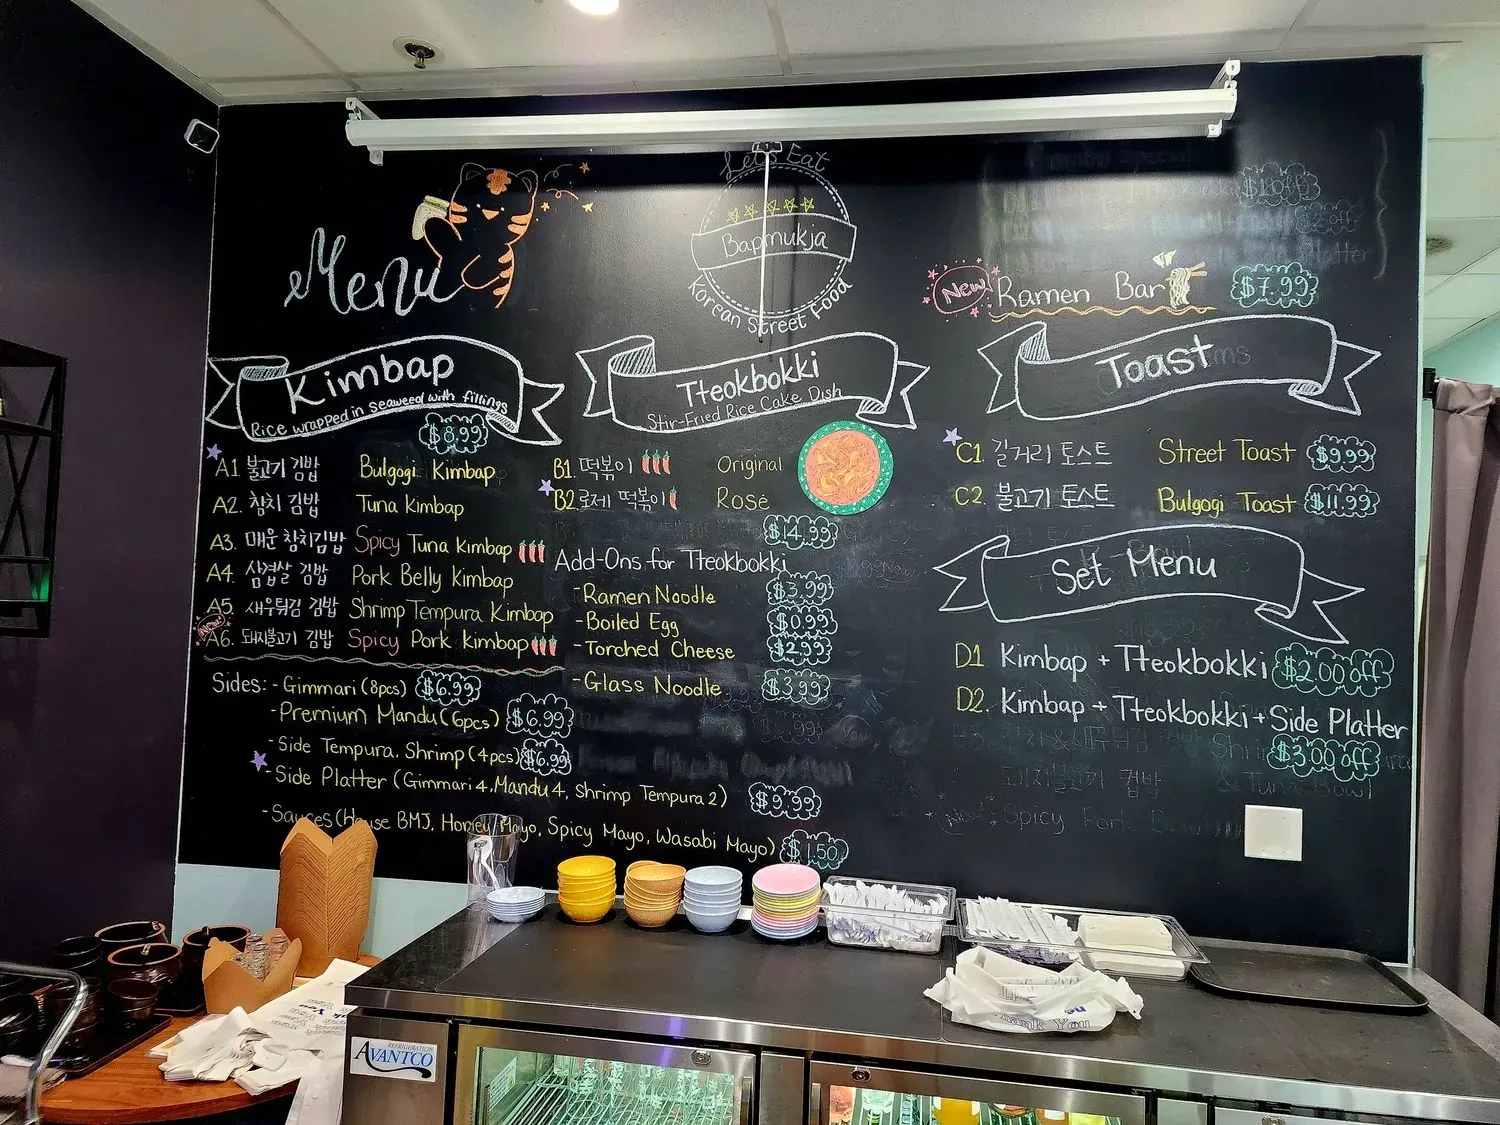 Menu
Let's Eat
Bapmukja
Korean Street Food
New! Ramen Bar $7.99
Kimbap
Rice wrapped in seaweed with fillings
$8.99
A1 불고기 김밥 Bulgogi Kimbap
A2. 참치 김밥 Tuna Kimbap
A3. 매운 참치김밥 Spicy Tuna Kimbap
A4. 삼겹살 김밥 Pork Belly Kimbap
A5. 새우튀김 김밥 Shrimp Tempura Kimbap
New A6. 돼지불고기 김밥 Spicy Pork Kimbap
Sides: - Gimmari (8pcs) $6.99
- Premium Mandu (6pcs) $6.99
- Side Tempura, Shrimp (4pcs) $6.99
- Side Platter (Gimmari 4, Mandu 4, Shrimp Tempura 2) $9.99
- Sauces (House BMJ, Honey Mayo, Spicy Mayo, Wasabi Mayo) $1.50
Tteokbokki
Stir-Fried Rice Cake Dish
B1. 떡볶이 Original
B2. 로제 떡볶이 Rosé
$14.99
Add-Ons for Tteokbokki
- Ramen Noodle $3.99
- Boiled Egg $0.99
- Torched Cheese $2.99
- Glass Noodle $3.99
Toast
C1. 길거리 토스트 Street Toast $9.99
C2. 불고기 토스트 Bulgogi Toast $11.99
Set Menu
D1 Kimbap + Tteokbokki $2.00 off
D2. Kimbap + Tteokbokki + Side Platter
$3.00 off
돼지불고기 컵밥 & Tuna Bowl
Spicy Pork Bowl
REFRIGERATION
AVANTCO
Thank You